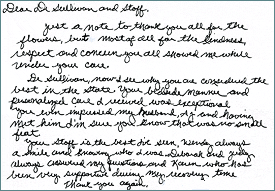 Dear Dr Sullivan and Staff,
Just a note to thank you all for the
flowers, but most of all for the kindness,
respect and concern you all showed me while
under your care.
Dr Sullivan, now I see why you are considered the
best in the state. Your bedside manner and
personalized care I received was exceptional.
You even impressed my husband, and having
met him I'm sure you know that was no small
feat.
Your staff is the best I've seen, Wendy always
a smile and knowing who I was, Deborah and
always answered my questions and Karen who has
been very supportive during my recovery time
Thank you again,